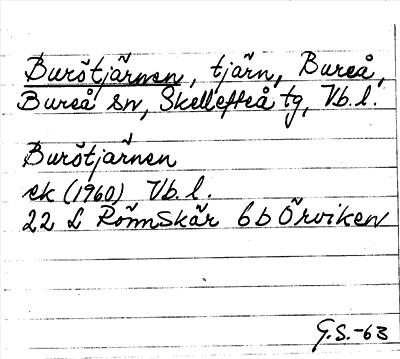 Burötjärnen, tjärn, Bureå,
Bureå sn, Skellefteå tg, Vb. l.
Burötjärnen
ek (1960) Vb. l.
22 L Rönnskär 6 b Örviken
G.S.-63